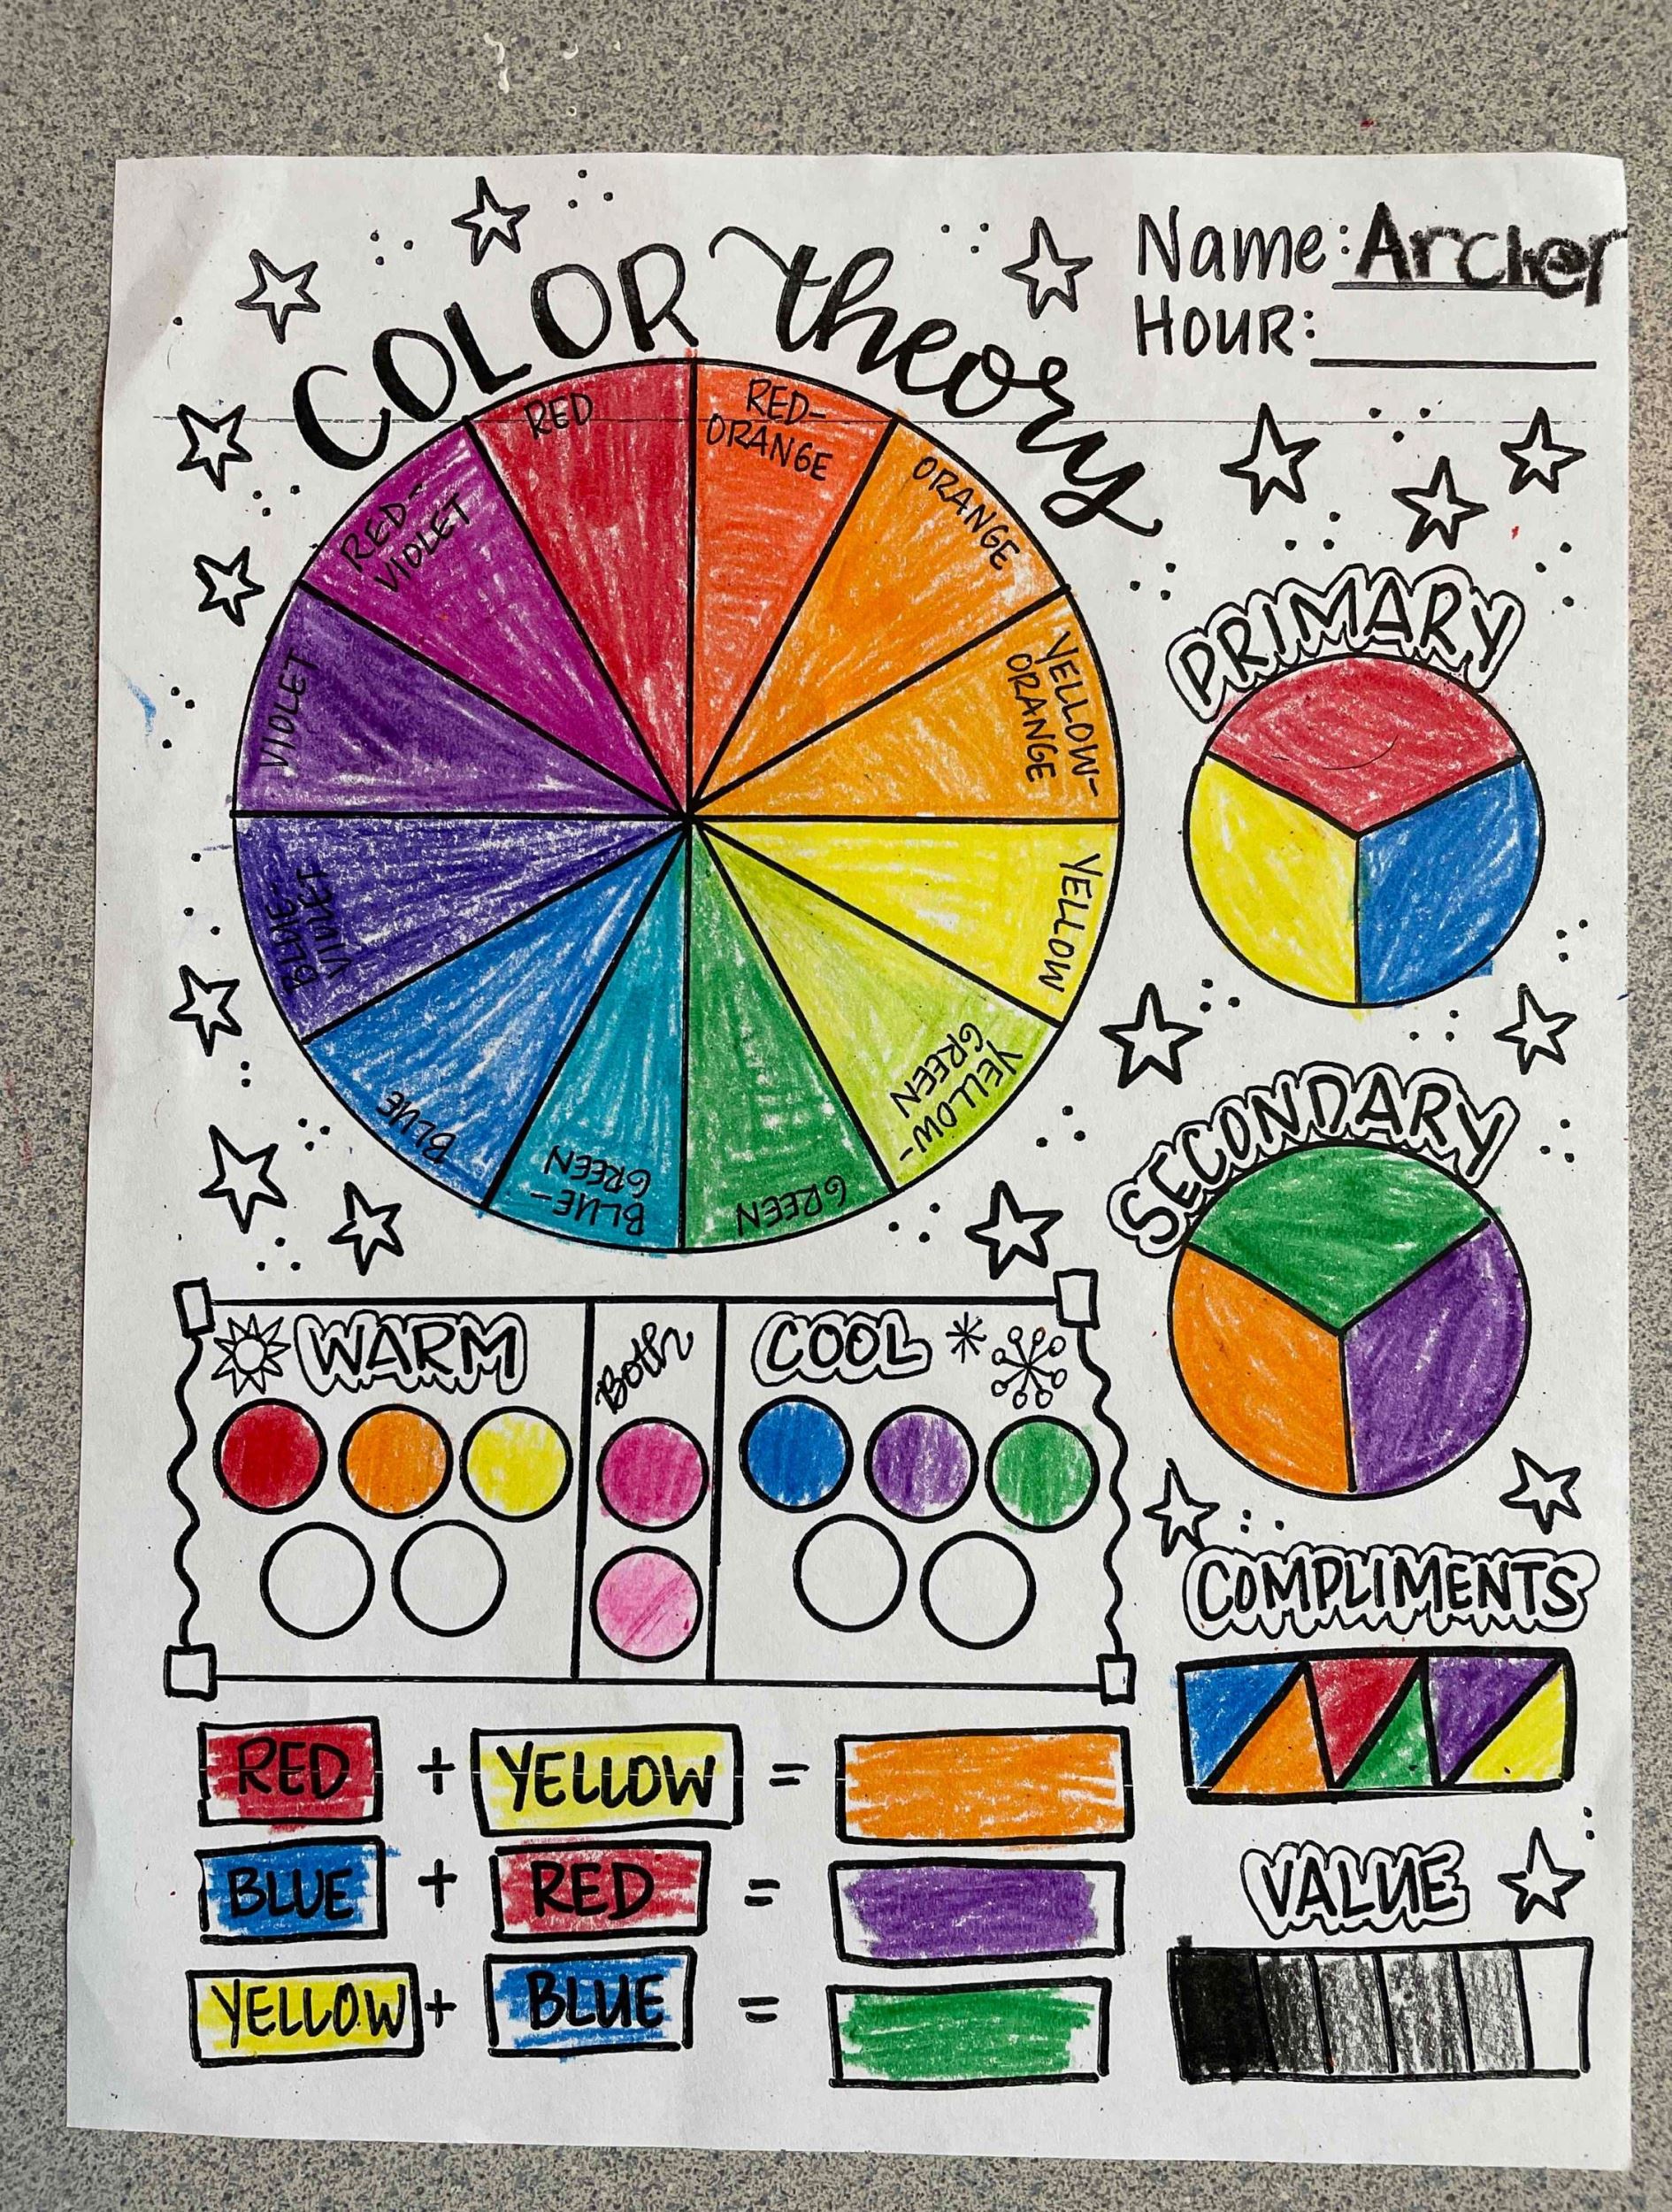 COLOR theory
Name: Archer
HOUR:
RED
RED-
ORANGE
ORANGE
YELLOW-
ORANGE
YELLOW
YELLOW-
GREEN
GREEN
BLUE-
GREEN
BLUE
BLUE-
VIOLET
VIOLET
RED-
VIOLET
PRIMARY
SECONDARY
WARM
Both
COOL
COMPLIMENTS
RED + YELLOW =
BLUE + RED =
YELLOW + BLUE =
VALUE